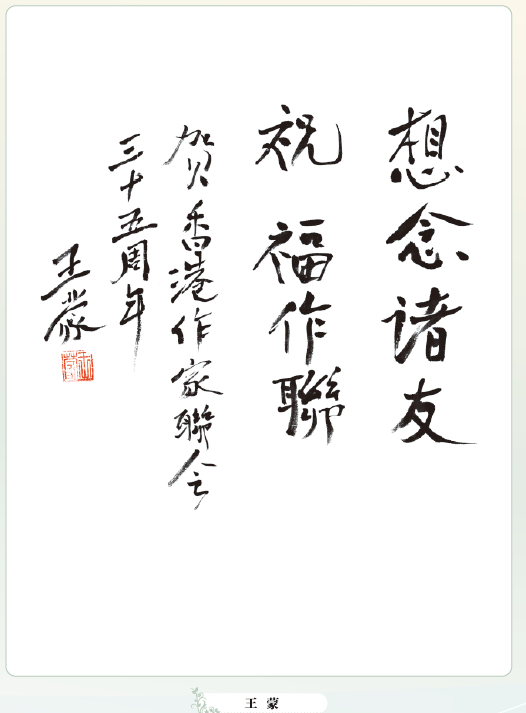 想念诸友
祝福作聯
贺香港作家聯会
三十五周年
王蒙
王蒙